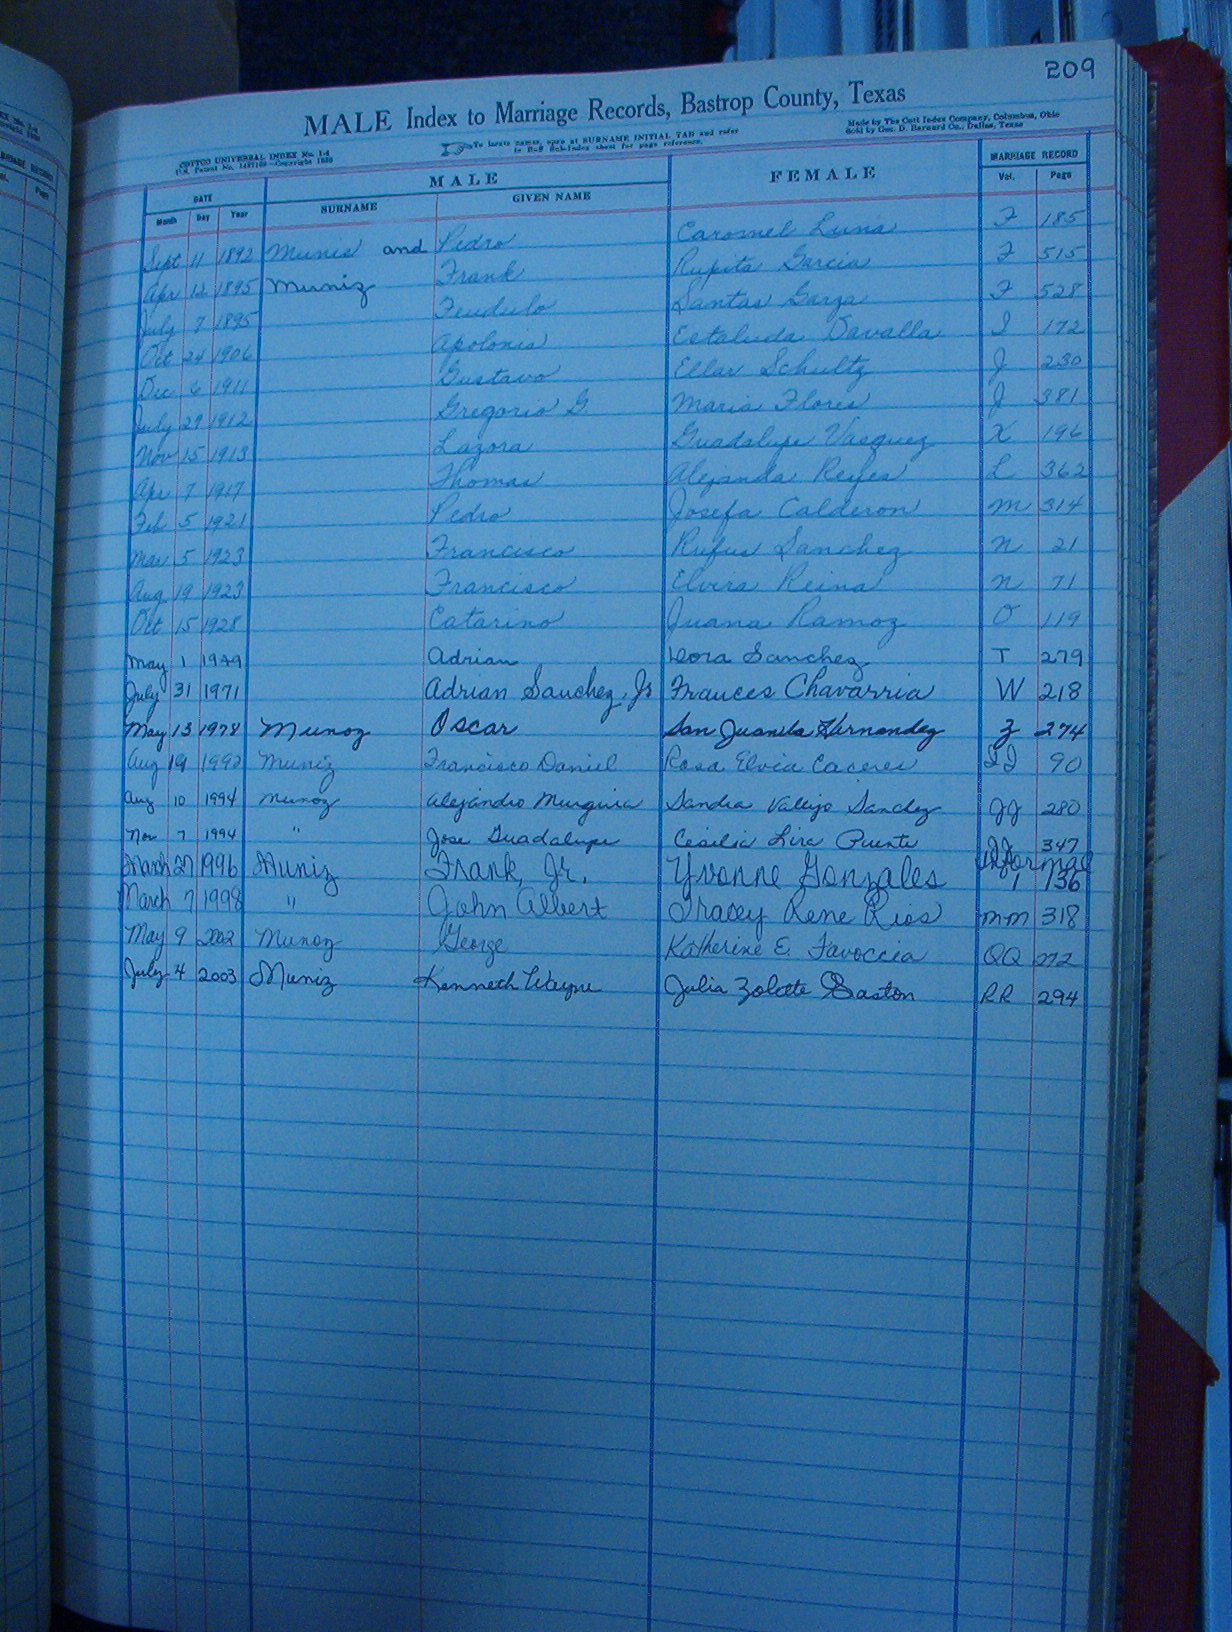 209
MALE Index to Marriage Records, Bastrop County, Texas
COTTCO UNIVERSAL INDEX No. 1-4
To locate names, open at SURNAME INITIAL TAB and refer
Made by The Cott Index Company, Columbus, Ohio
Sold by Geo. D. Barnard Co., Dallas, Texas
DATE MALE FEMALE MARRIAGE RECORD
Month Day Year SURNAME GIVEN NAME Vol. Page
Sept 11 1892 Munis and Pedro Caromel Luna F 185
Apr 12 1895 Muniz Frank Rupita Garcia F 515
July 7 1895 Feudulo Santas Garza F 528
Oct 24 1906 Apolonia Estaluda Davalla I 172
Dec 6 1911 Gustavo Ellar Schultz J 230
July 29 1912 Gregorio G. Maria Flores J 381
Nov 15 1913 Lazora Guadalupe Vasquez K 196
Apr 7 1917 Thomas Alejanda Reyes L 362
Feb 5 1921 Pedro Josefa Calderon M 314
Mar 5 1923 Francisco Rufus Sanchez N 21
Aug 19 1923 Francisco Elvira Reina N 71
Oct 15 1928 Catarino Juana Ramoz O 119
May 1 1949 Adrian Dora Sanchez T 279
July 31 1971 Adrian Sanchez, Jr Frances Chavarria W 218
May 13 1978 Munoz Oscar San Juanita Hernandez Z 274
Aug 19 1992 Muniz Francisco Daniel Rosa Elvia Caceres II 90
Aug 10 1994 Munoz Alejandro Murguia Sandra Vallejo Sanchez JJ 280
Nov 7 1994 " Jose Guadalupe Cecilia Lira Puente JJ 347
March 27 1996 Muniz Frank, Jr. Yvonne Gonzales Informal 1 136
March 7 1998 " John Albert Tracey Rene Rios MM 318
May 9 2002 Munoz George Katherine E. Favoccia QQ 272
July 4 2003 Muniz Kenneth Wayne Julia Zolette Gaston RR 294